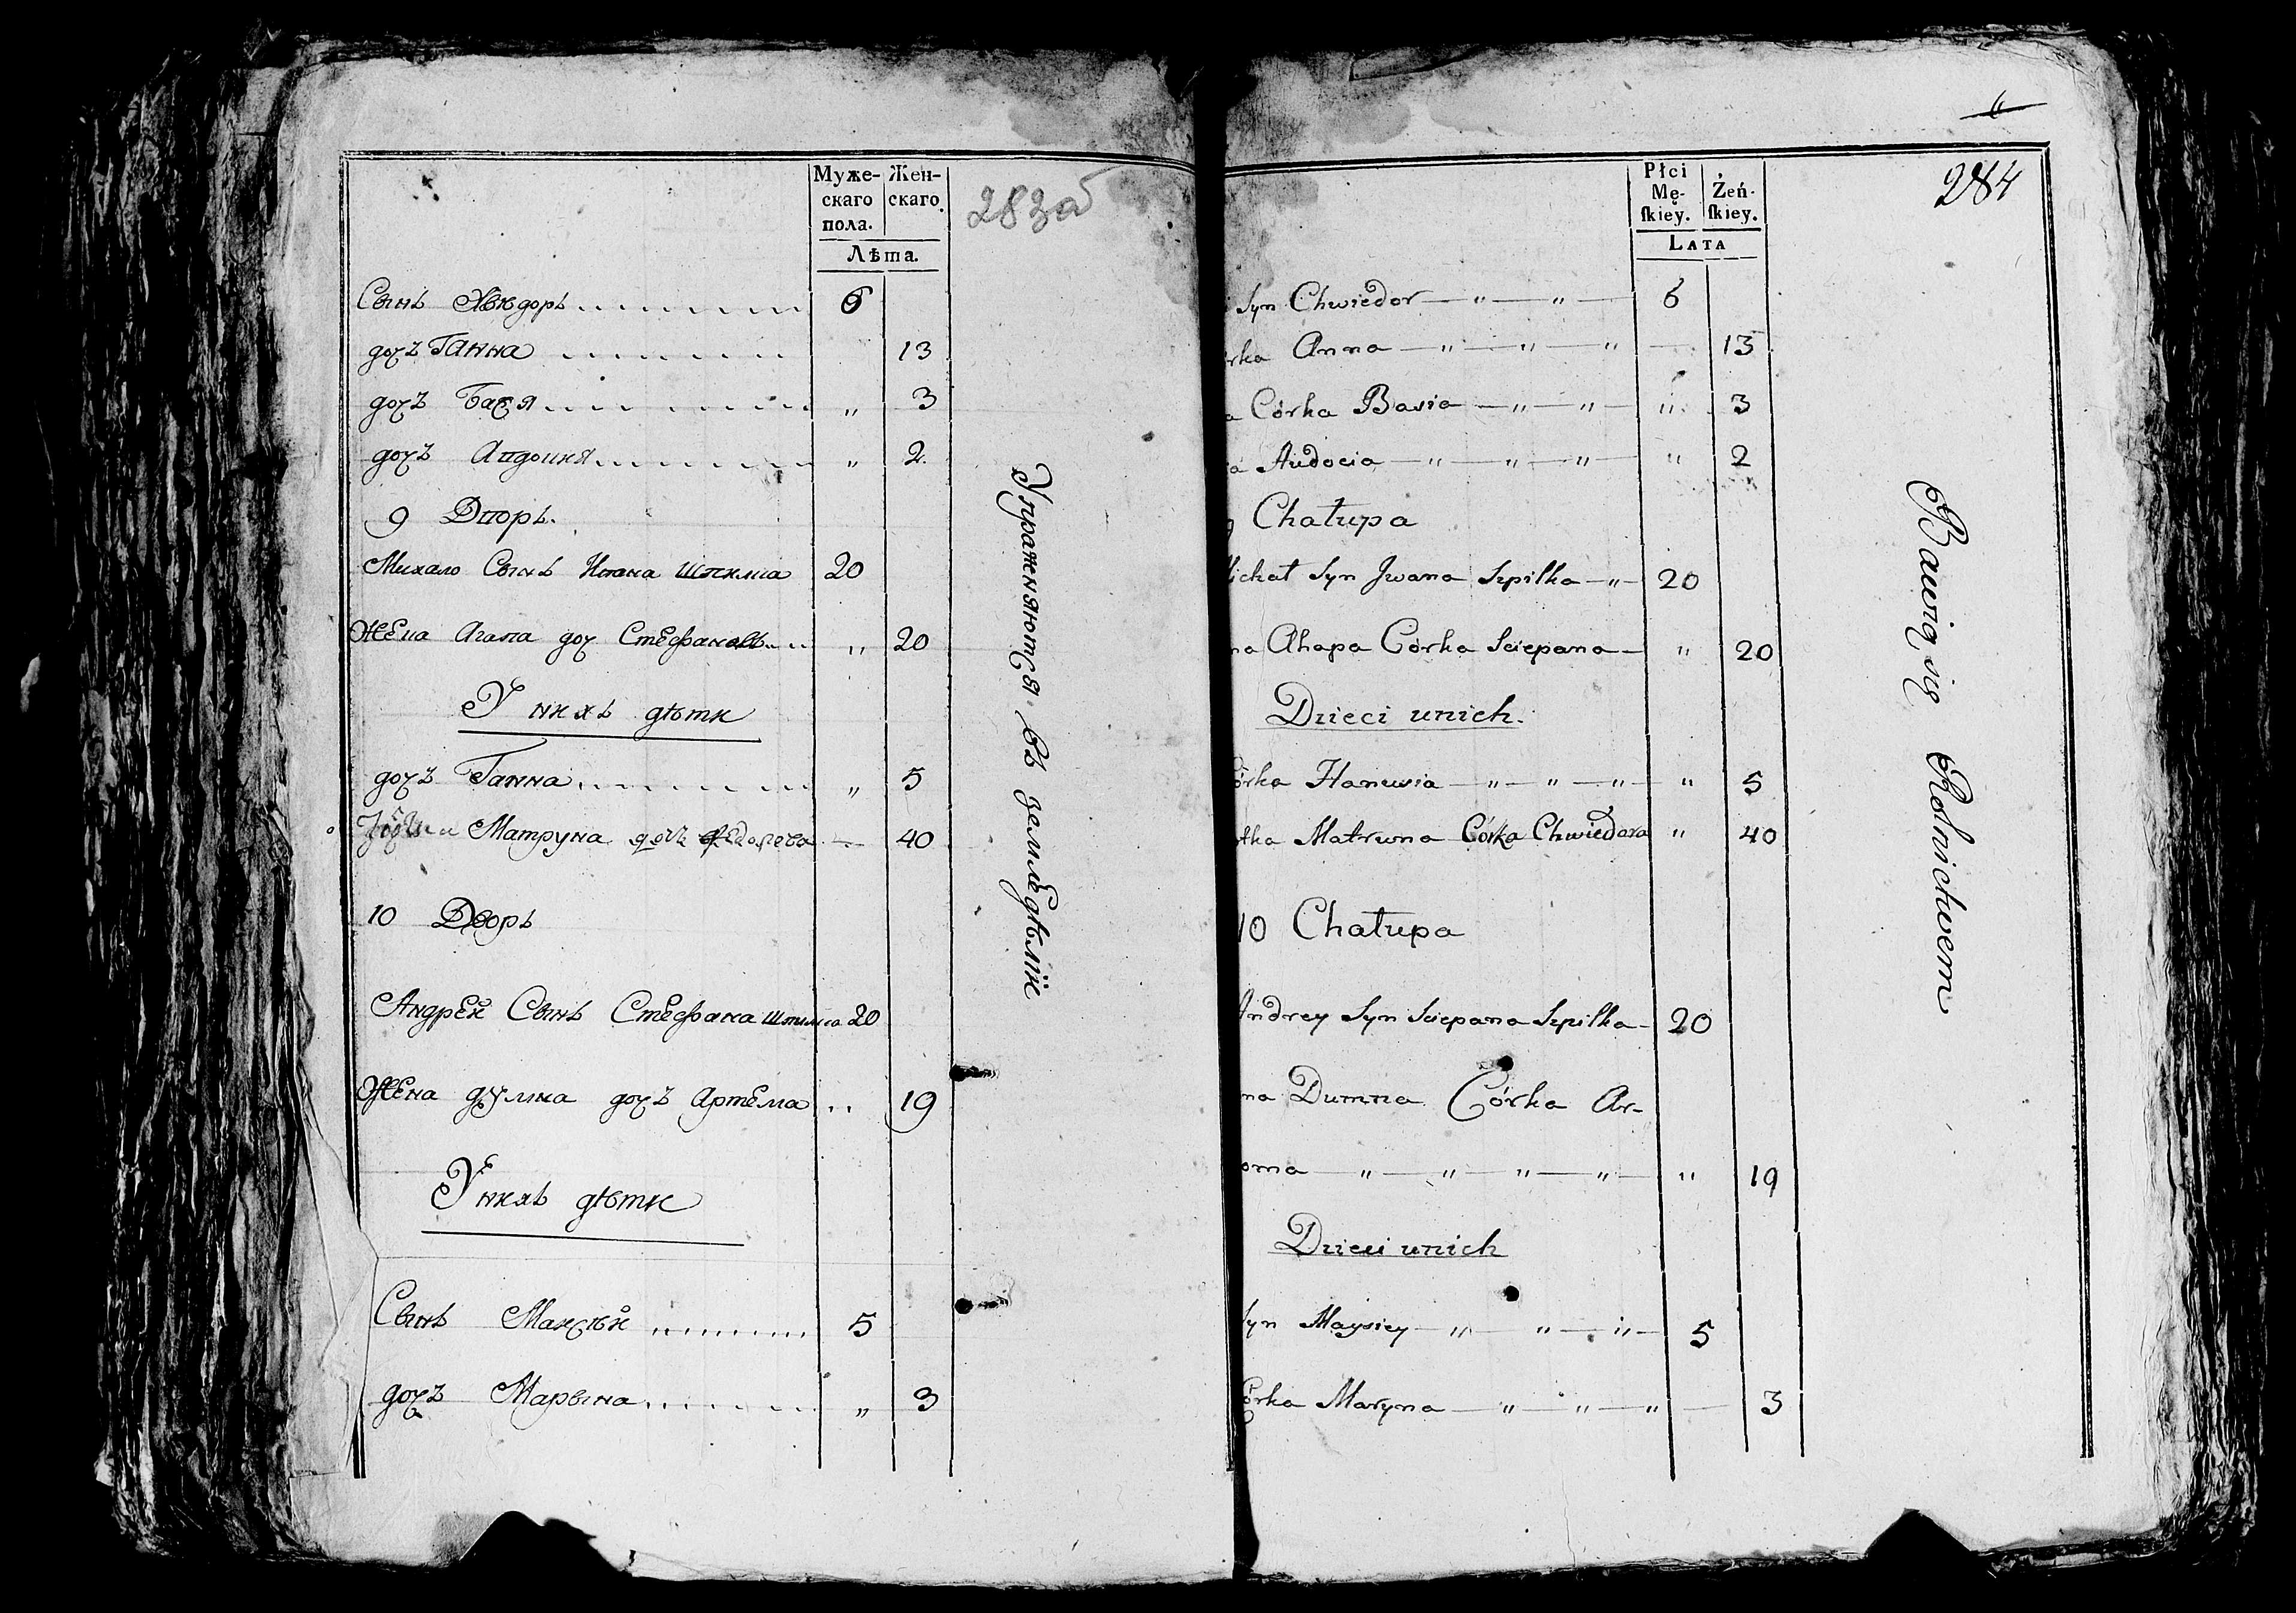 Муже-
скаго
пола.
Жен-
скаго.
Лѣта.
283об
Сынъ Хвѣдоръ 6
дочъ Ганна 13
дочъ Бася „ 3
дочъ Авдоция „ 2
9 Дворъ.
Михало Сынъ Ивана Шпилка 20
Жена Агапа доч Стефанова „ 20
У нихъ дѣти
дочъ Ганна „ 5
Матруна дочъ Федорова — 40
10 Дворъ
Андрей Сынъ Стефана Шпилка 20
Жена думна дочъ Артема „ 19
У нихъ дѣти
Сынъ Майсѣй 5
дочъ Марына „ 3
Упражняются въ земледѣліи
Płci
Mę-
ſkiey.
Żeń-
ſkiey.
LATA
284
Syn Chwiedor — „ — „ — 6
rka Anna — „ — „ — „ — 13
a Córka Basia — „ — „ — „ 3
a Audocia — „ — „ — „ — „ 2
9 Chałupa
Michał Syn Jwana Szpilka — „ — 20
na Ahapa Córka Sciepana — „ 20
Dzieci unich.
órka Hanusia — „ — „ — „ — „ 5
tka Matruna Córka Chwiedora „ 40
10 Chałupa
Andrey Syn Sciepana Szpilka — 20
na Dumna Córka Ar-
oma — „ — „ — „ — „ — „ 19
Dzieci unich
Syn Maysiey — „ — „ — „ — 5
Córka Maryna — „ — „ — „ — 3
Bawią się Rolnictwem